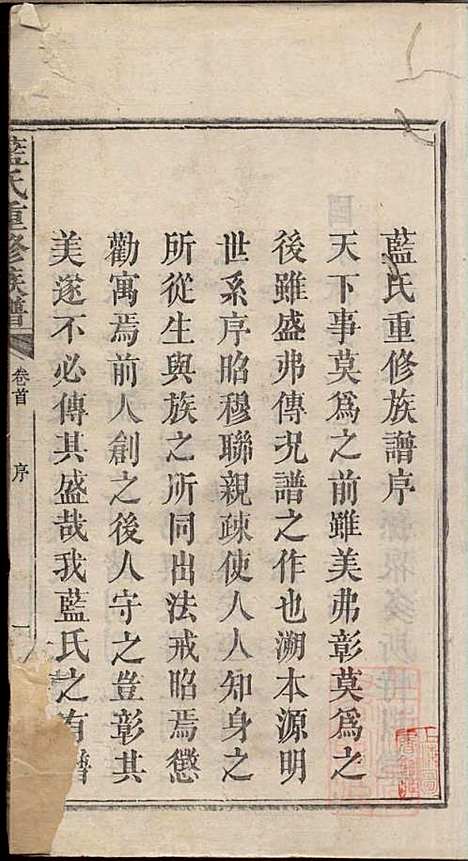 藍氏重修族譜序
天下事莫爲之前雖美弗彰莫爲之
後雖盛弗傳况譜之作也溯本源明
世系序昭穆聯親疎使人人知身之
所從生與族之所同出法戒昭焉懲
勸寓焉前人創之後人守之豈彰其
美遂不必傳其盛哉我藍氏之有譜
藍氏重修族譜
卷首
序
一